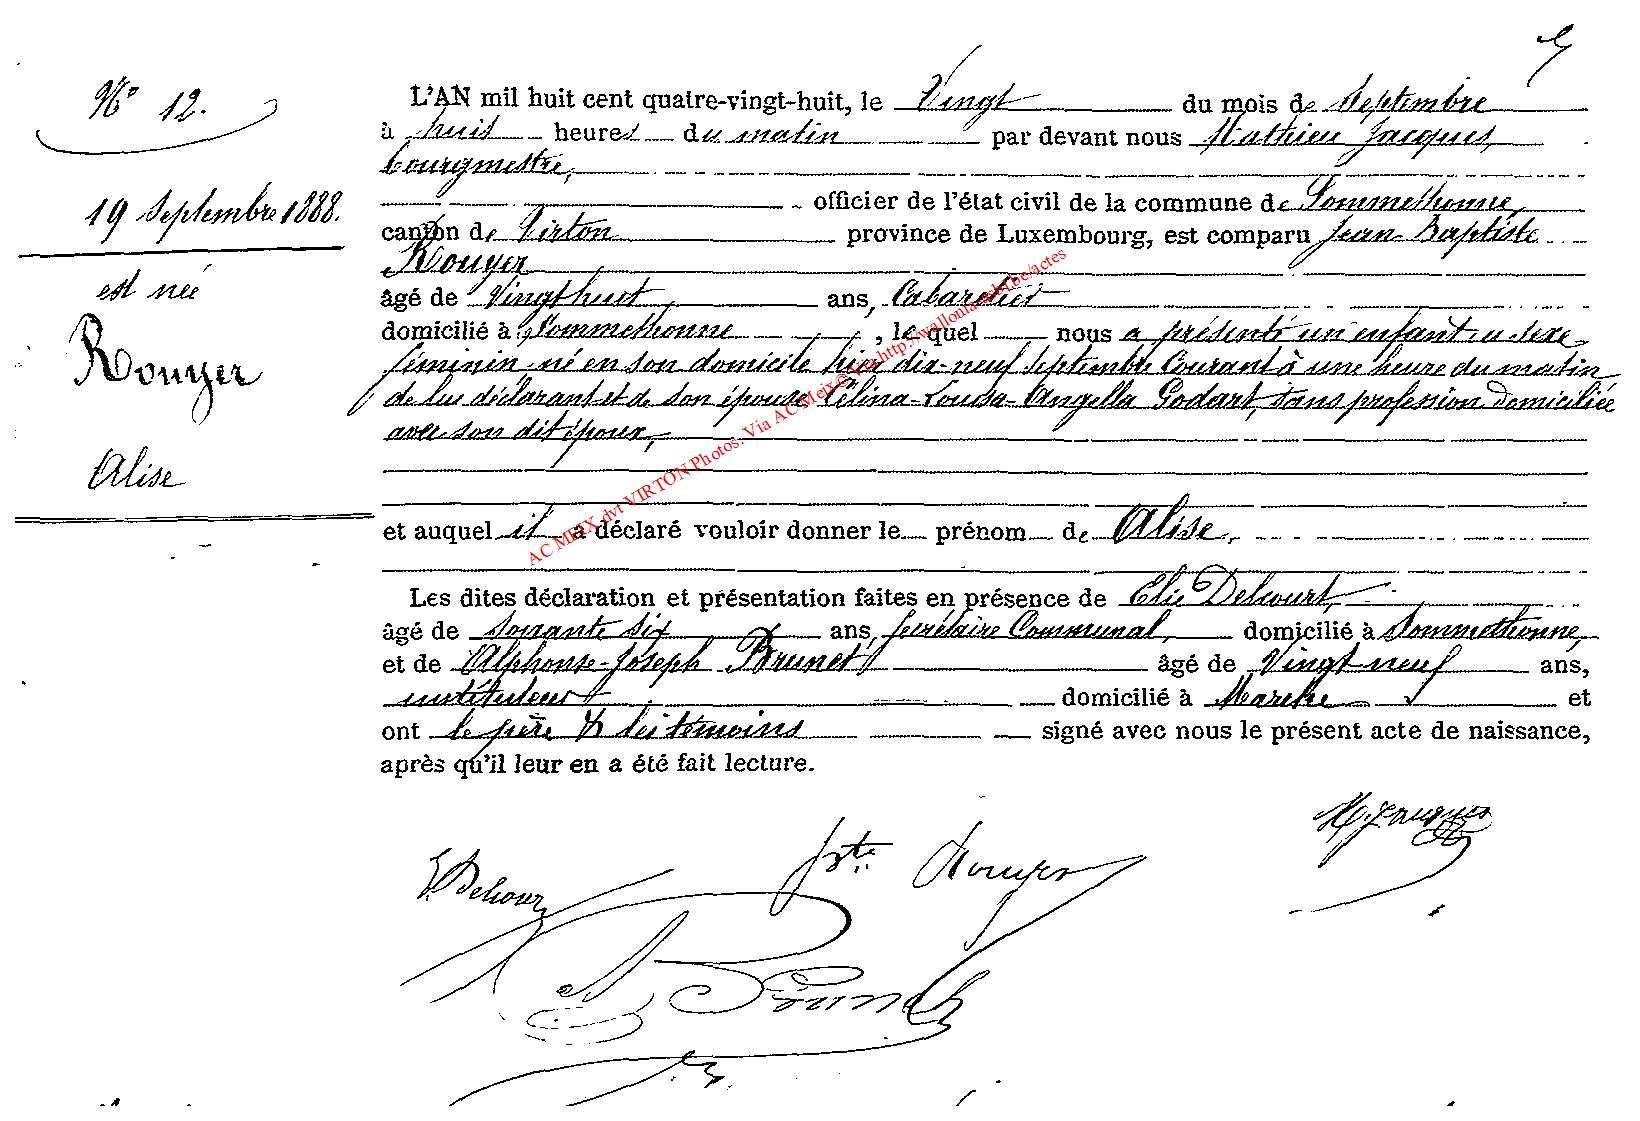 N° 12.
19 Septembre 1888.
est née
Rouyer
Alise
L'AN mil huit cent quatre-vingt-huit, le Vingt du mois de Septembre
à huit heures du matin par devant nous Mathieu Jacques,
bourgmestre,
officier de l'état civil de la commune de Sommethonne,
canton de Virton province de Luxembourg, est comparu Jean-Baptiste
Rouyer
âgé de Vingt huit ans, Cabaretier
domicilié à Sommethonne, lequel nous a présenté un enfant du sexe
féminin né en son domicile hier dix-neuf Septembre Courant à une heure du matin
de lui déclarant et de son épouse Célina-Louisa-Angella Godart, sans profession domiciliée
avec son dit époux,
et auquel il a déclaré vouloir donner le prénom de Alise.
Les dites déclaration et présentation faites en présence de Elie Delcourt,
âgé de soixante six ans, Secrétaire Communal, domicilié à Sommethonne,
et de Alphonse-Joseph Brunet âgé de Vingt neuf ans,
instituteur domicilié à et
ont le père & les témoins signé avec nous le présent acte de naissance,
après qu'il leur en a été fait lecture.
M. Jacques
E Delcour
Jbte Rouyer
A Brunet
AC MEIX-dvt VIRTON Photos. Via AC Meix http://wallonia.be/actes